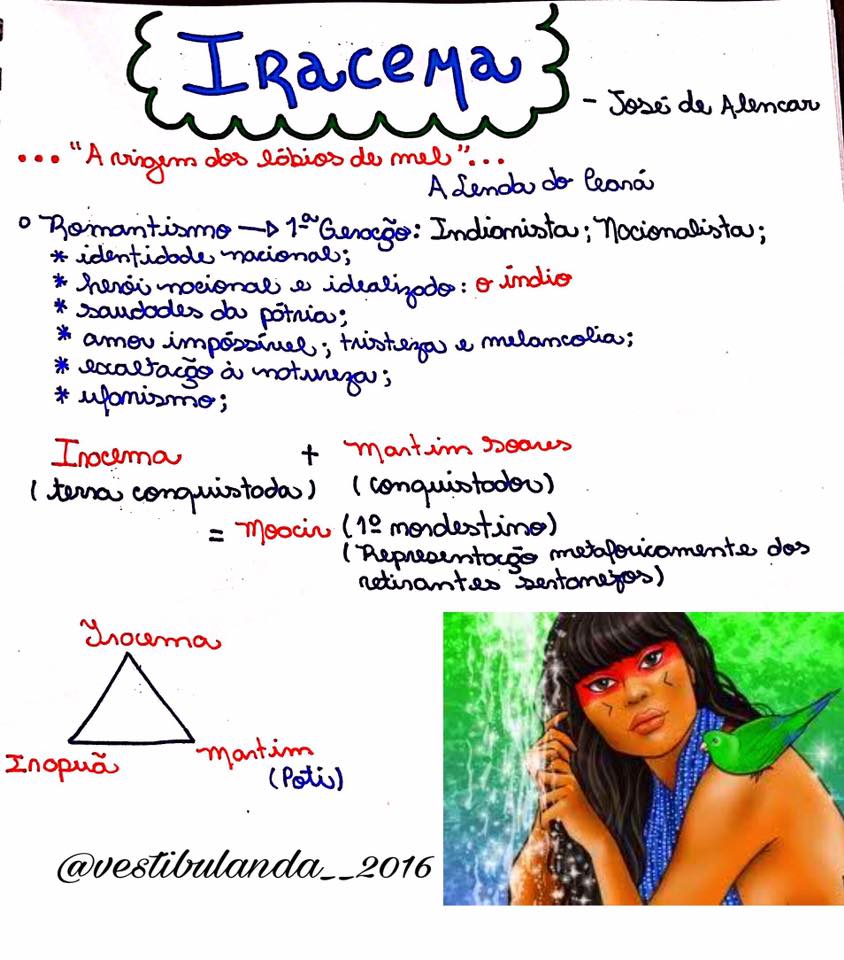 Iracema
- José de Alencar
... "A virgem dos lábios de mel"...
A Lenda do Ceará
Romantismo → 1ª Geração: Indianista; Nacionalista;
* identidade nacional;
* herói nacional e idealizado: o índio
* saudades da pátria;
* amor impóssível; tristeza e melancolia;
* exaltação à natureza;
* ufanismo;
Iracema + Martim Soares
(terra conquistada) (conquistador)
= Moacir (1º nordestino)
(Representação metaforicamente dos
retirantes sertanejos)
Iracema
Irapuã Martim
(Poti)
@vestibulanda__2016